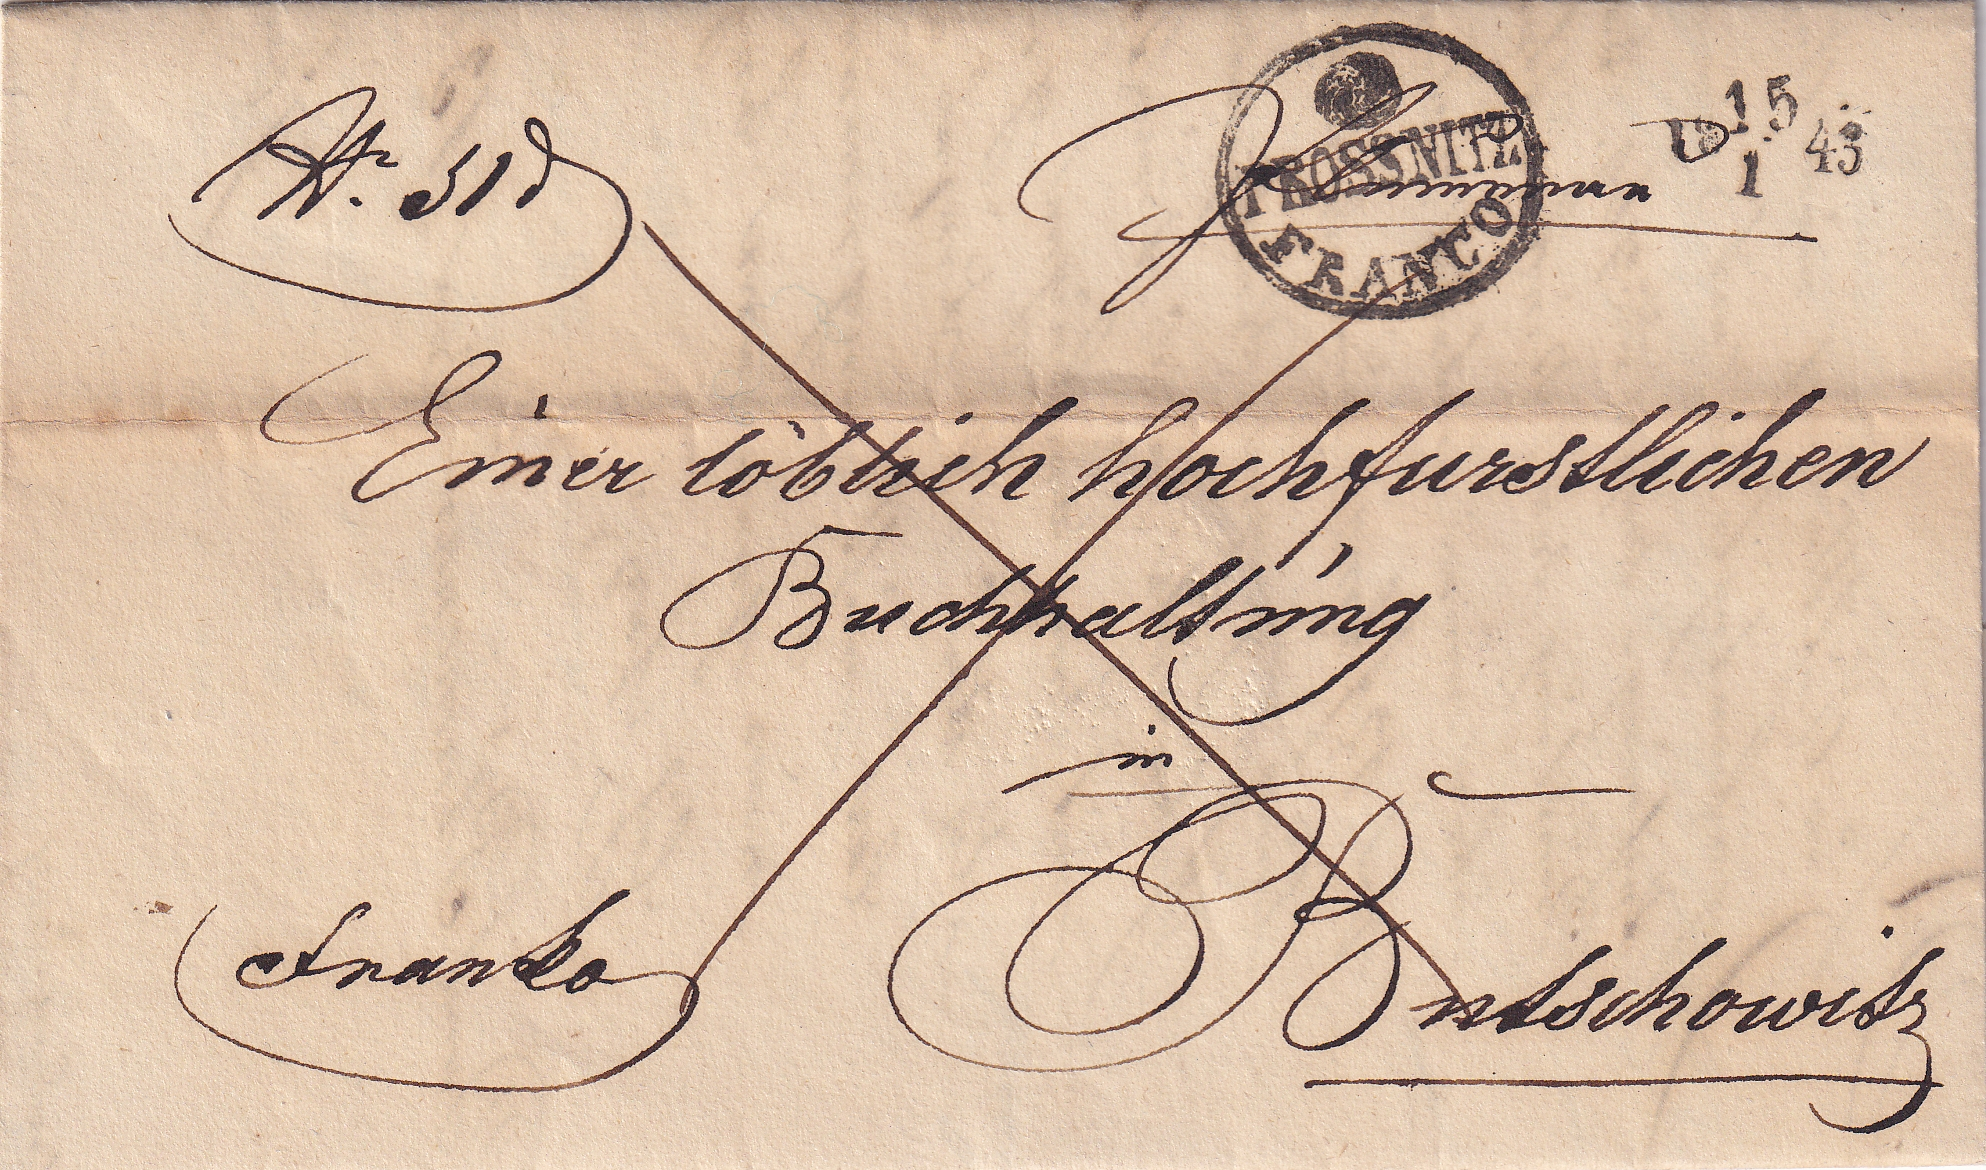 PROSSNITZ
FRANCO
15
1
43
Einer löblich hochfurstlichen
Buchhaltung
in
Butschowitz
Franko